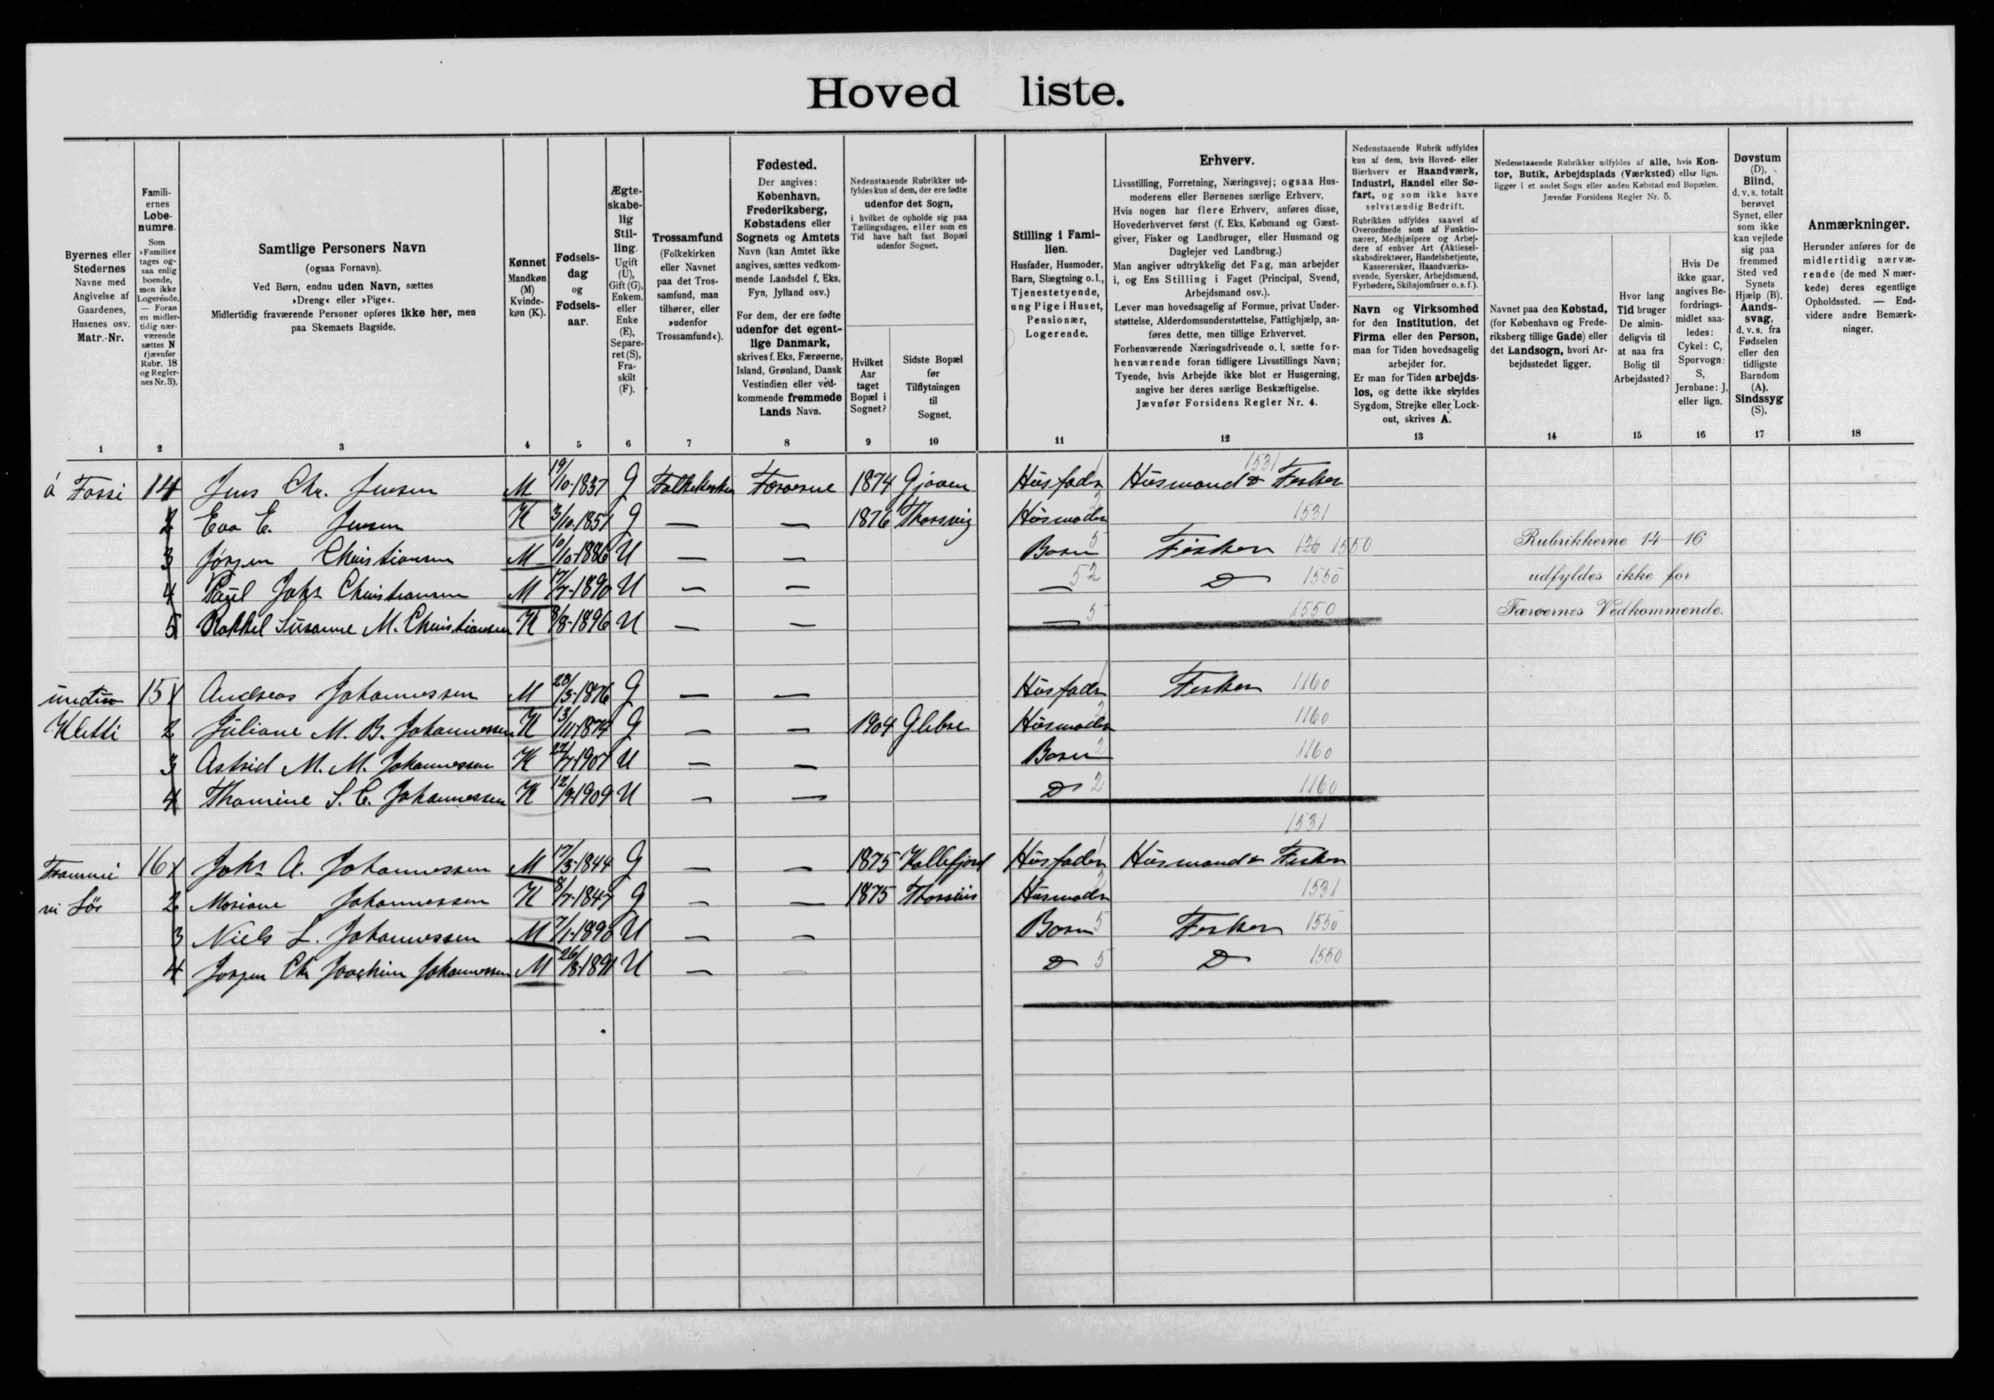 Hoved liste.
Byernes eller Stedernes Navne med Angivelse af Gaardenes, Husenes osv. Matr.-Nr.
Famili-ernes Løbe-numre.
Som »Familie« tages og-saa enlig boende, men ikke Logerende. — Foran en midler-tidig nær-værende sættes N (jævnfør Rubr. 18 og Regler-nes Nr. 3).
Samtlige Personers Navn
(ogsaa Fornavn).
Ved Børn, endnu uden Navn, sættes
»Dreng« eller »Pige«.
Midlertidig fraværende Personer opføres ikke her, men
paa Skemaets Bagside.
Kønnet
Mandkøn (M) Kvinde-køn (K).
Fødsels-dag og Fødsels-aar.
Ægte-skabe-lig Stil-ling.
Ugift (U), Gift (G), Enkem. eller Enke (E), Separe-ret (S), Fra-skilt (F).
Trossamfund
(Folkekirken eller Navnet paa det Tros-samfund, man tilhører, eller »udenfor Trossamfund«).
Fødested.
Der angives:
København, Frederiksberg, Købstadens eller Sognets og Amtets Navn (kan Amtet ikke angives, sættes vedkom-mende Landsdel f. Eks. Fyn, Jylland osv.)
For dem, der ere fødte udenfor det egent-lige Danmark, skrives f. Eks. Færøerne, Island, Grønland, Dansk Vestindien eller ved-kommende fremmede Lands Navn.
Nedenstaaende Rubrikker ud-fyldes kun af dem, der ere fødte udenfor det Sogn, i hvilket de opholde sig paa Tællingsdagen, eller som en Tid have haft fast Bopæl udenfor Sognet.
Hvilket Aar taget Bopæl i Sognet?
Sidste Bopæl før Tilflytningen til Sognet.
Stilling i Fami-lien.
Husfader, Husmoder, Barn, Slægtning o. l., Tjenestetyende, ung Pige i Huset, Pensionær, Logerende.
Erhverv.
Livsstilling, Forretning, Næringsvej; ogsaa Hus-moderens eller Børnenes særlige Erhverv.
Hvis nogen har flere Erhverv, anføres disse, Hovederhvervet først (f. Eks. Købmand og Gæst-giver, Fisker og Landbruger, eller Husmand og Daglejer ved Landbrug.)
Man angiver udtrykkelig det Fag, man arbejder i, og Ens Stilling i Faget (Principal, Svend, Arbejdsmand osv.).
Lever man hovedsagelig af Formue, privat Under-støttelse, Alderdomsunderstøttelse, Fattighjælp, an-føres dette, men tillige Erhvervet.
Forhenværende Næringsdrivende o. l. sætte for-henværende foran tidligere Livsstillings Navn; Tyende, hvis Arbejde ikke blot er Husgerning, angive her deres særlige Beskæftigelse.
Jævnfør Forsidens Regler Nr. 4.
Nedenstaaende Rubrik udfyldes kun af dem, hvis Hoved- eller Bierhverv er Haandværk, Industri, Handel eller Sø-fart, og som ikke have selvstændig Bedrift.
Rubrikken udfyldes saavel af Overordnede som af Funktio-nærer, Medhjælpere og Arbej-dere af enhver Art (Aktiesel-skabsdirektører, Handelsbetjente, Kasserersker, Haandværks-svende, Syersker, Arbejdsmænd, Fyrbødere, Skibsjomfruer o. s. f.).
Navn og Virksomhed for den Institution, det Firma eller den Person, man for Tiden hovedsagelig arbejder for.
Er man for Tiden arbejds-løs, og dette ikke skyldes Sygdom, Strejke eller Lock-out, skrives A.
Nedenstaaende Rubrikker udfyldes af alle, hvis Kon-tor, Butik, Arbejdsplads (Værksted) eller lign. ligger i et andet Sogn eller anden Købstad end Bopælen.
Jævnfør Forsidens Regler Nr. 5.
Navnet paa den Købstad, (for København og Frede-riksberg tillige Gade) eller det Landsogn, hvori Ar-bejdsstedet ligger.
Hvor lang Tid bruger De almin-deligvis til at naa fra Bolig til Arbejdssted?
Hvis De ikke gaar, angives Be-fordrings-midlet saa-ledes: Cykel: C, Sporvogn: S, Jernbane: J, eller lign.
Døvstum (D), Blind, d. v. s. totalt berøvet Synet, eller som ikke kan vejlede sig paa fremmed Sted ved Synets Hjælp (B). Aands-svag, d. v. s. fra Fødselen eller den tidligste Barndom (A). Sindssyg (S).
Anmærkninger.
Herunder anføres for de midlertidig nærvæ-rende (de med N mær-kede) deres egentlige Opholdssted. — End-videre andre Bemærk-ninger.
1 2 3 4 5 6 7 8 9 10 11 12 13 14 15 16 17 18
á Fossi 14 1 Jens Chr. Jensen M 19/10-1837 G Folkekirken Færøerne 1874 Gjoven Husfader 1 Husmand & Fisker 1531
2 Eva E. Jensen K 3/10-1851 G — — 1876 Thorsvig Husmoder 2 1531
3 Jørgen Christiansen M 10/10-1886 U — — Barn 5 Fisker 1550 Rubrikkerne 14-16
4 Paul Johs Christiansen M 17/7-1890 U — — — 52 Do 1550 udfyldes ikke for
5 Rakkil Susanne M. Christiansen K 8/8-1896 U — — — 5 1550 Færøernes Vedkommende.
15 1 Andreas Johannessen M 20/3-1876 G — — Husfader 1 Fisker 1160
Kletti 2 Juliane M. B. Johannessen K 13/11-1874 G — — 1904 Glibre Husmoder 2 1160
3 Astrid M. M. Johannessen K 22/7-1907 U — — Barn 2 1160
4 Thomine S. C. Johannessen K 12/9-1909 U — — Do 2 1160
1531
16 1 Johs A. Johannessen M 17/3-1844 G — — 1875 Kollefjord Husfader 1 Husmand & Fisker
2 Mariane Johannessen K 8/7-1847 G — — 1875 Husmoder 2 1531
3 Niels L. Johannessen M 7/1-1890 U — — Barn 5 Fisker 1550
4 Jørgen Chr Joachim Johannessen M 26/8-1891 U — — Do 5 Do 1550